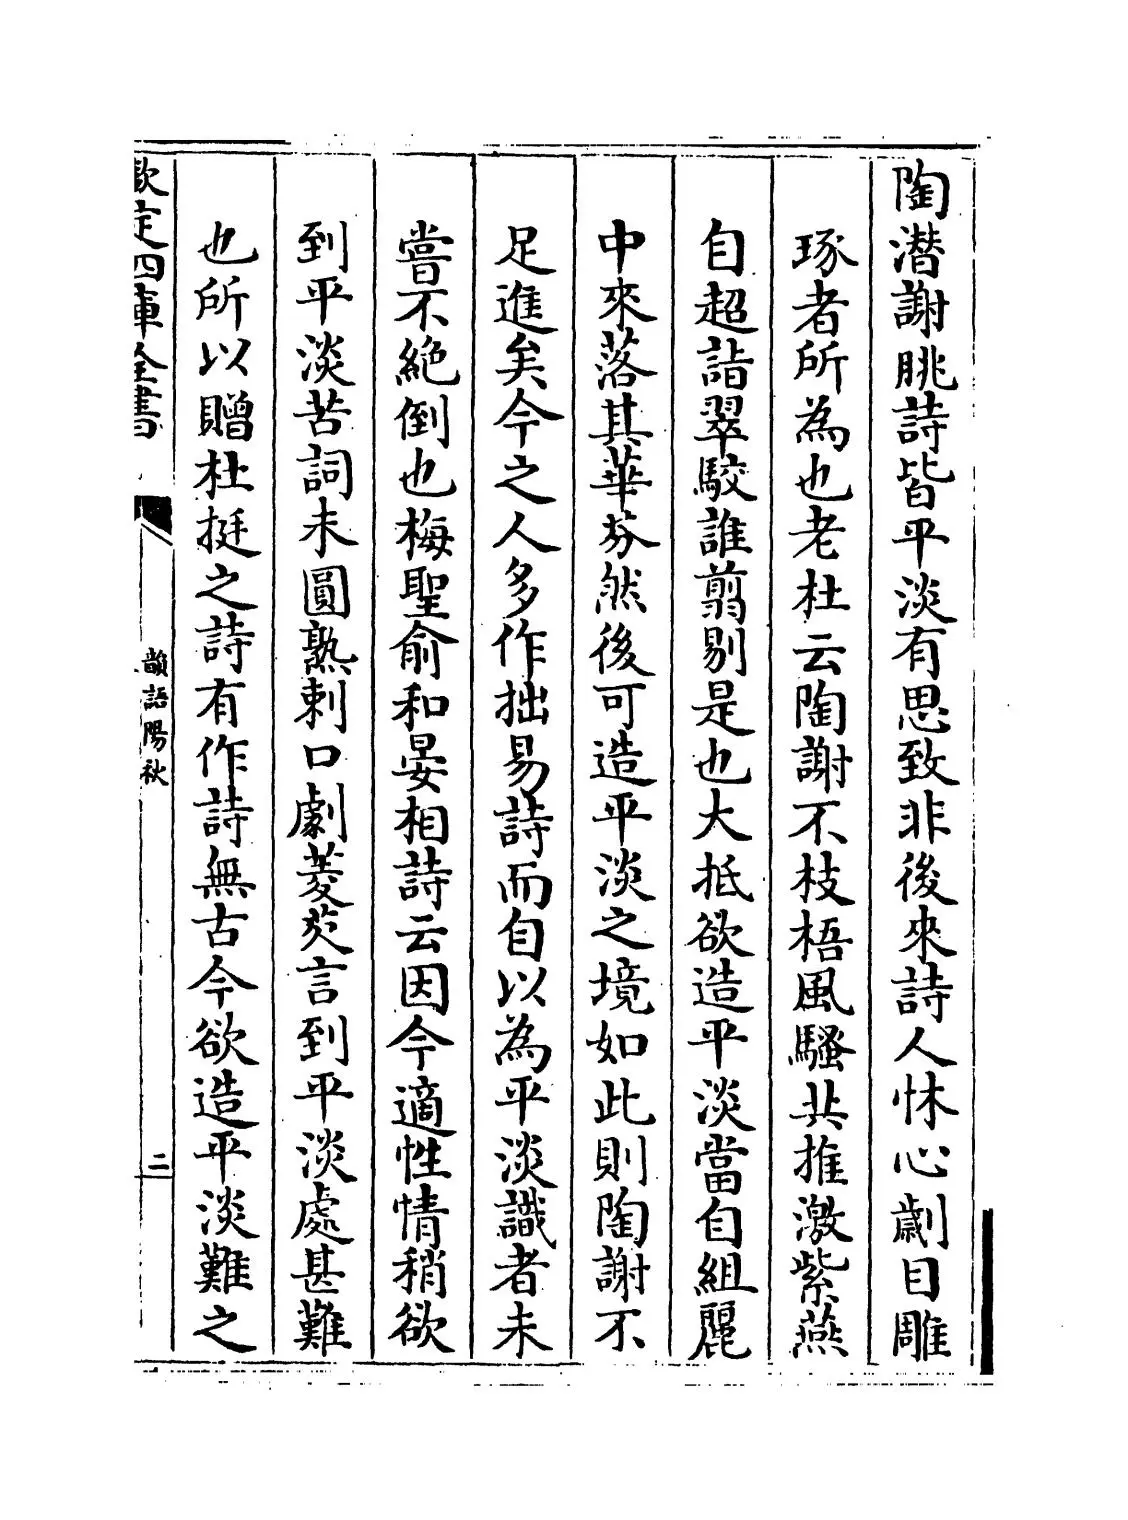 陶潜謝朓詩皆平淡有思致非後來詩人怵心劌目雕
琢者所為也老杜云陶謝不枝梧風騷共推激紫燕
自超詣翠駮誰剪剔是也大抵欲造平淡當自組麗
中來落其華芬然後可造平淡之境如此則陶謝不
足進矣今之人多作拙易詩而自以為平淡識者未
嘗不絶倒也梅聖俞和晏相詩云因今適性情稍欲
到平淡苦詞未圓熟刺口劇菱芡言到平淡處甚難
也所以贈杜挺之詩有作詩無古今欲造平淡難之
欽定四庫全書
韻語陽秋
二